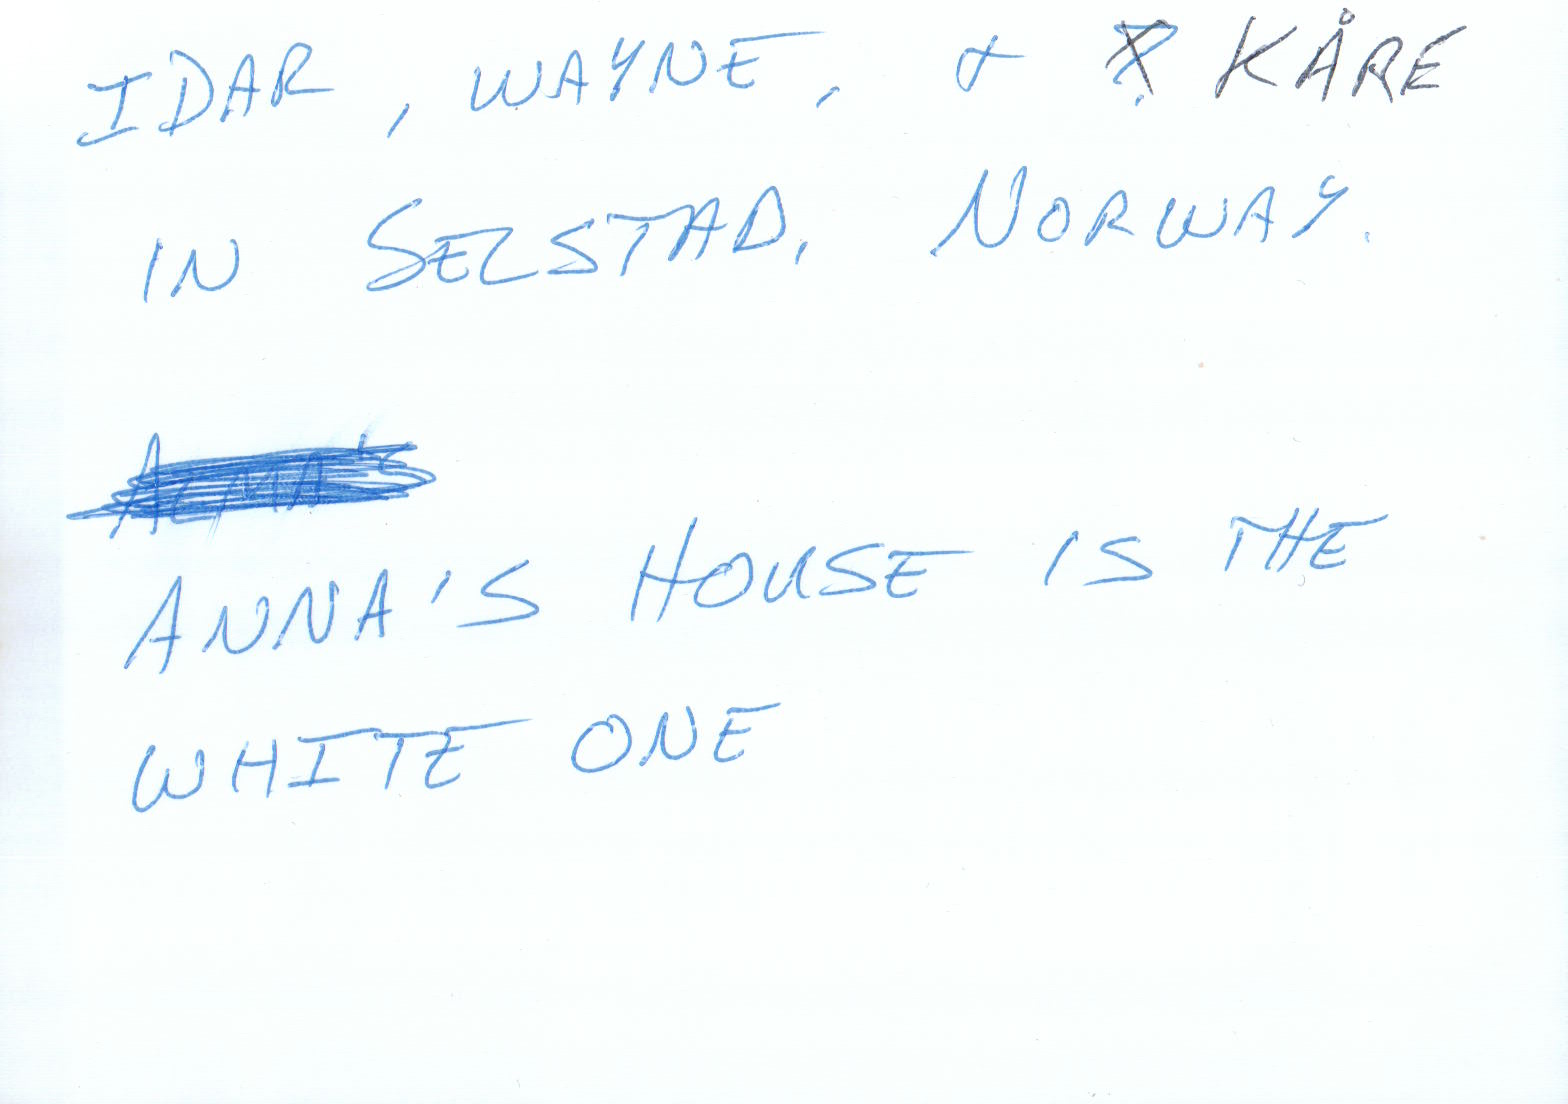 IDAR, WAYNE, & ? KÅRE
IN SELSTAD, NORWAY.
ANNA'S HOUSE IS THE
WHITE ONE